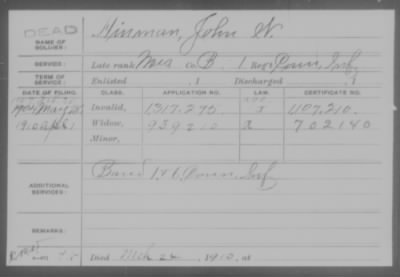 DEAD
NAME OF SOLDIER: Hinman, John W.
SERVICE: Late rank, Mus Co. B, 1 Reg't Conn. Inf.
TERM OF SERVICE: Enlisted , 1 Discharged , 1
DATE OF FILING. CLASS. APPLICATION NO. LAW. CERTIFICATE NO.
May Invalid, 1317.270 1107.210
1910 Apl 1 Widow, 939210 702140
Minor,
ADDITIONAL SERVICES: Band 1 & 6 Conn. Inf
REMARKS:
Died Mch 24, 1910, at